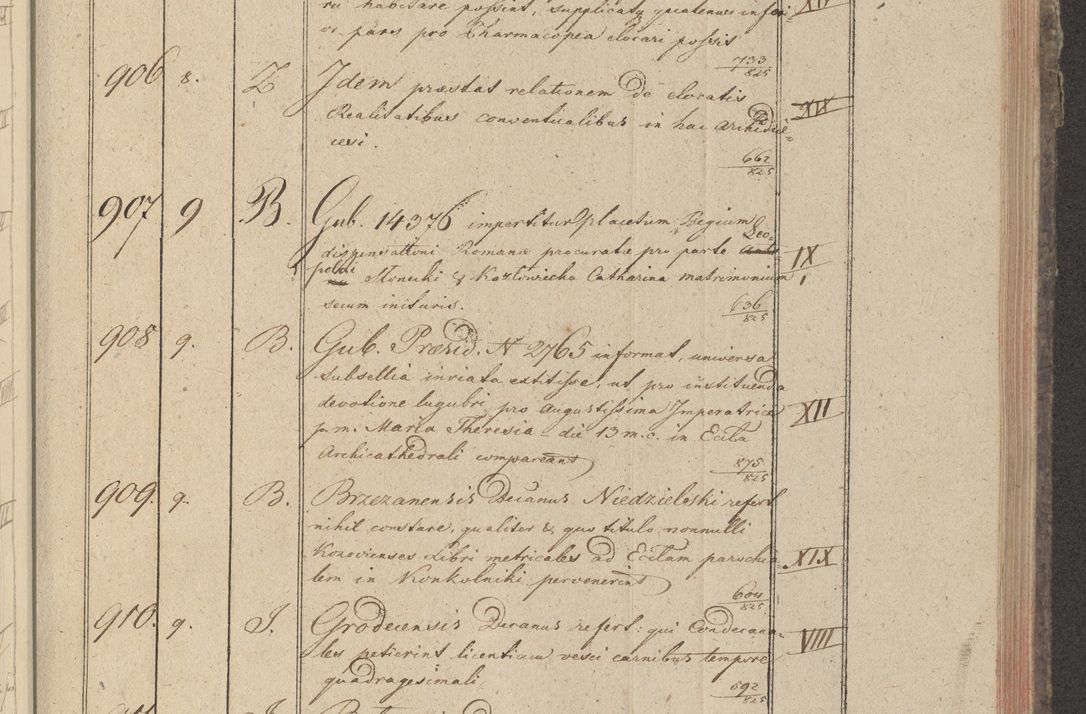 ri habitare possint, supplicat, quatenus inferi= XII
or pars pro Pharmacopea elocari possit
733/825
906 8. Z Idem præstat relationem de elocatis XII
Realitatibus conventualibus in hac Archidiæ=
cesi.
662/825
907 9 B. Gub. 14376 impertitur Placetum Regium
dispensationi Romanæ procuratæ pro parte Leo= IX
poldi Slonecki & Kozlowiecka Catharina matrimonium
secum inituris.
636/825
908 9. B. Gub. Præsid. N 2765 informat, universa
Subsellia inviata extitisse, ut pro instituenda
devotione lugubri pro Augustissima Imperatrice XII
p. m. Maria Theresia die 13 m. c. in Ecclã
Archicathedrali compareant
875/825
909. 9. B. Brzezanensis Decanus Niedzielski refert
nihil constare, qualiter & quo titulo nonnulli
Kozovienses Libri metricales ad Ecclãm parochia= XIX
lem in Konkolniki pervenerint
604/825
910. 9. J. Grodecensis Decanus refert: qui Condecana= VIII
les petierint licentiam vesci carnibus tempore
quadragesimali
692/825